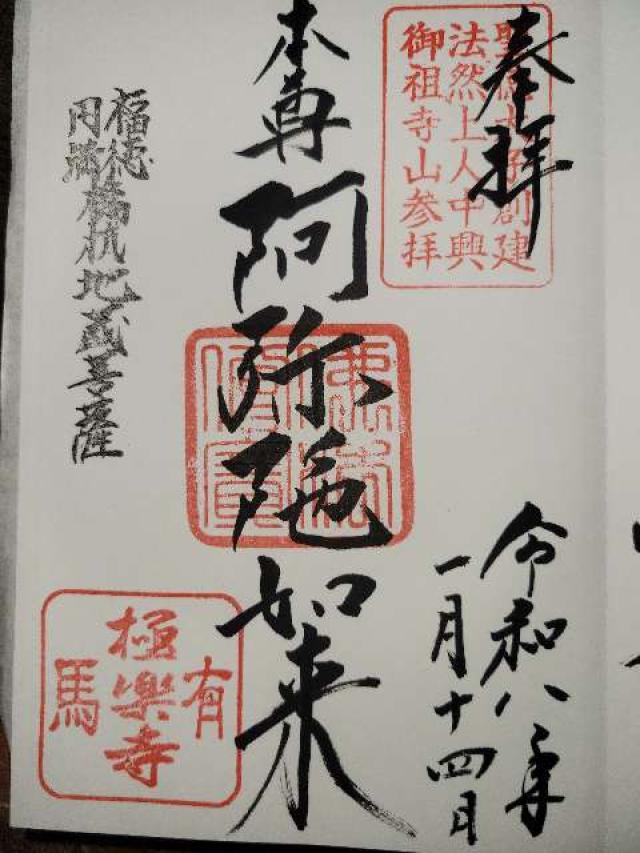 奉拝
聖徳太子創建
法然上人中興
御祖寺山参拝
令和八年
一月十四日
本尊阿弥陀如来
佛法僧寶
福徳
円満
橋杭地蔵菩薩
有馬
極楽寺